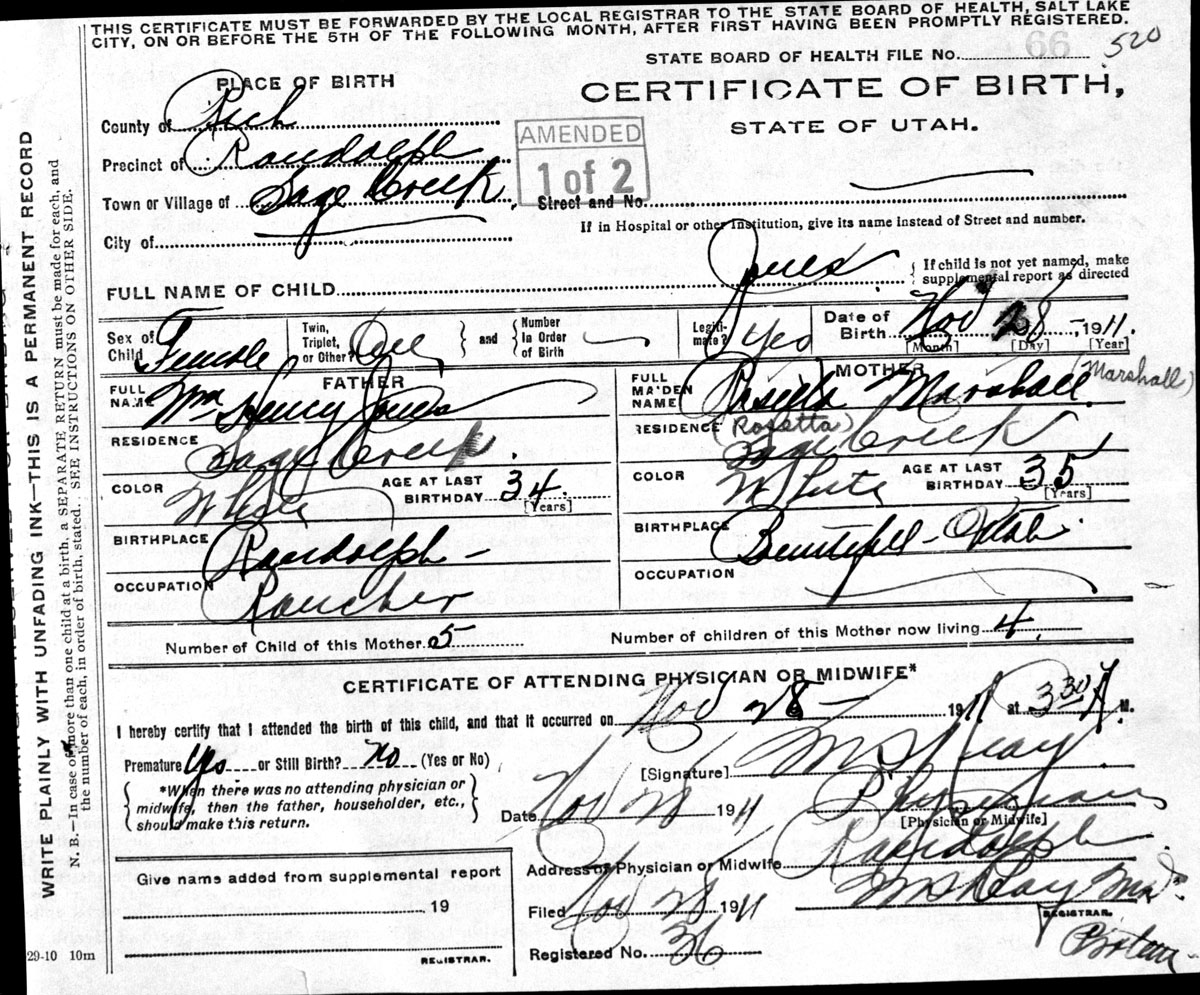 THIS CERTIFICATE MUST BE FORWARDED BY THE LOCAL REGISTRAR TO THE STATE BOARD OF HEALTH, SALT LAKE
CITY, ON OR BEFORE THE 5TH OF THE FOLLOWING MONTH, AFTER FIRST HAVING BEEN PROMPTLY REGISTERED.
STATE BOARD OF HEALTH FILE No. 66 520
PLACE OF BIRTH
CERTIFICATE OF BIRTH,
STATE OF UTAH.
County of Rich
Precinct of Randolph
AMENDED
1 of 2
Town or Village of Sage Creek
Street and No.
If in Hospital or other Institution, give its name instead of Street and number.
City of
FULL NAME OF CHILD Jones
{ If child is not yet named, make
supplemental report as directed
Sex of Child Female
Twin, Triplet, or Other? One
and
Number In Order of Birth
Legiti-mate? Yes
Date of Birth Nov 28 - 1911.
[Month] [Day] [Year]
FATHER
FULL NAME Wm Henry Jones
RESIDENCE Sage Creek.
COLOR White
AGE AT LAST BIRTHDAY 34
[Years]
BIRTHPLACE Randolph -
OCCUPATION Rancher
MOTHER
FULL MAIDEN NAME Marshall (Marshall)
(Rosetta)
RESIDENCE Sage Creek
COLOR White
AGE AT LAST BIRTHDAY 35
[Years]
BIRTHPLACE Bountiful - Utah
OCCUPATION
Number of Child of this Mother 5
Number of children of this Mother now living 4
CERTIFICATE OF ATTENDING PHYSICIAN OR MIDWIFE*
I hereby certify that I attended the birth of this child, and that it occurred on Nov 28 - 1911 at 3 30 A M.
Premature Yes or Still Birth? No (Yes or No)
*When there was no attending physician or
midwife, then the father, householder, etc.,
should make this return.
[Signature] Reay
Date Nov 28 1911
Physician
[Physician or Midwife]
Address of Physician or Midwife Randolph
Filed Nov 28 1911
Reay
REGISTRAR.
Registered No. 36
Give name added from supplemental report
19
REGISTRAR.
29-10 10m
WRITE PLAINLY WITH UNFADING INK—THIS IS A PERMANENT RECORD
N. B.—In case of more than one child at a birth, a SEPARATE RETURN must be made for each, and
the number of each, in order of birth, stated. SEE INSTRUCTIONS ON OTHER SIDE.